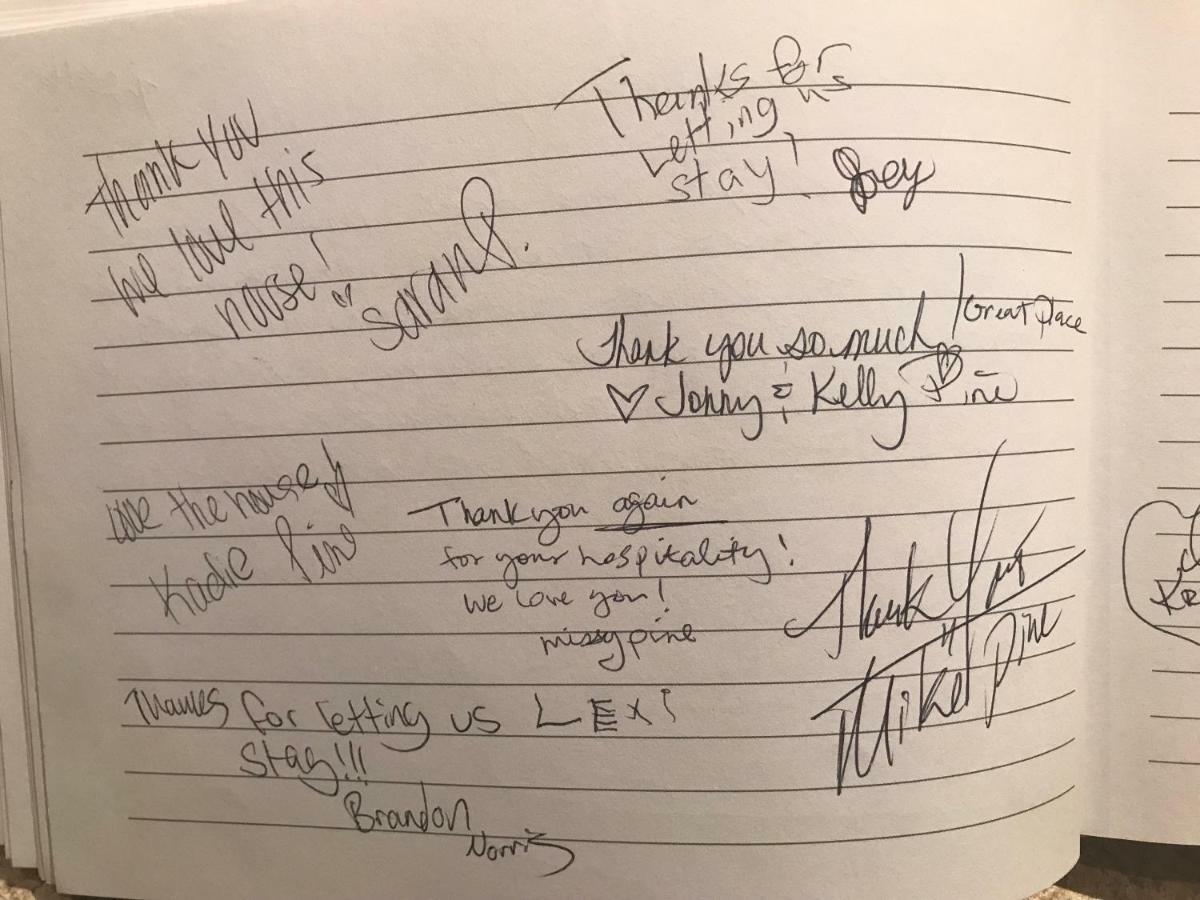 Thank you
we love this
house!
Sarah P.
Thanks for
Letting us
stay!
Joey
Great place
Thank you so much
Johny & Kelly Pine
Love the house
Kadie Pine
Thank you again
for your hospitality!
we love you!
missy pine
Thank You
Mike Pine
Thanks for letting us
stay!!!
LEXI
Brandon
Norris